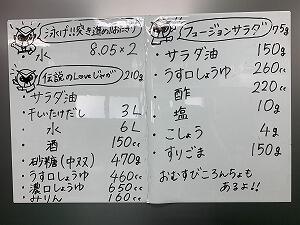 泳げ!!突き進めおにぎり
水 8.05×2
伝説のLoveじゃが 210g
・サラダ油
・干しいたけだし 3L
・水 6L
・酒 150cc
・砂糖(中ヌス) 470g
・うす口しょうゆ 460cc
・濃口しょうゆ 650cc
・みりん 160cc
フュージョンサラダ 75g
・サラダ油 150g
・うす口しょうゆ 260cc
・酢 220cc
・塩 10g
・こしょう 4g
・すりごま 150g
おむすびころんちょも
あるよ!!